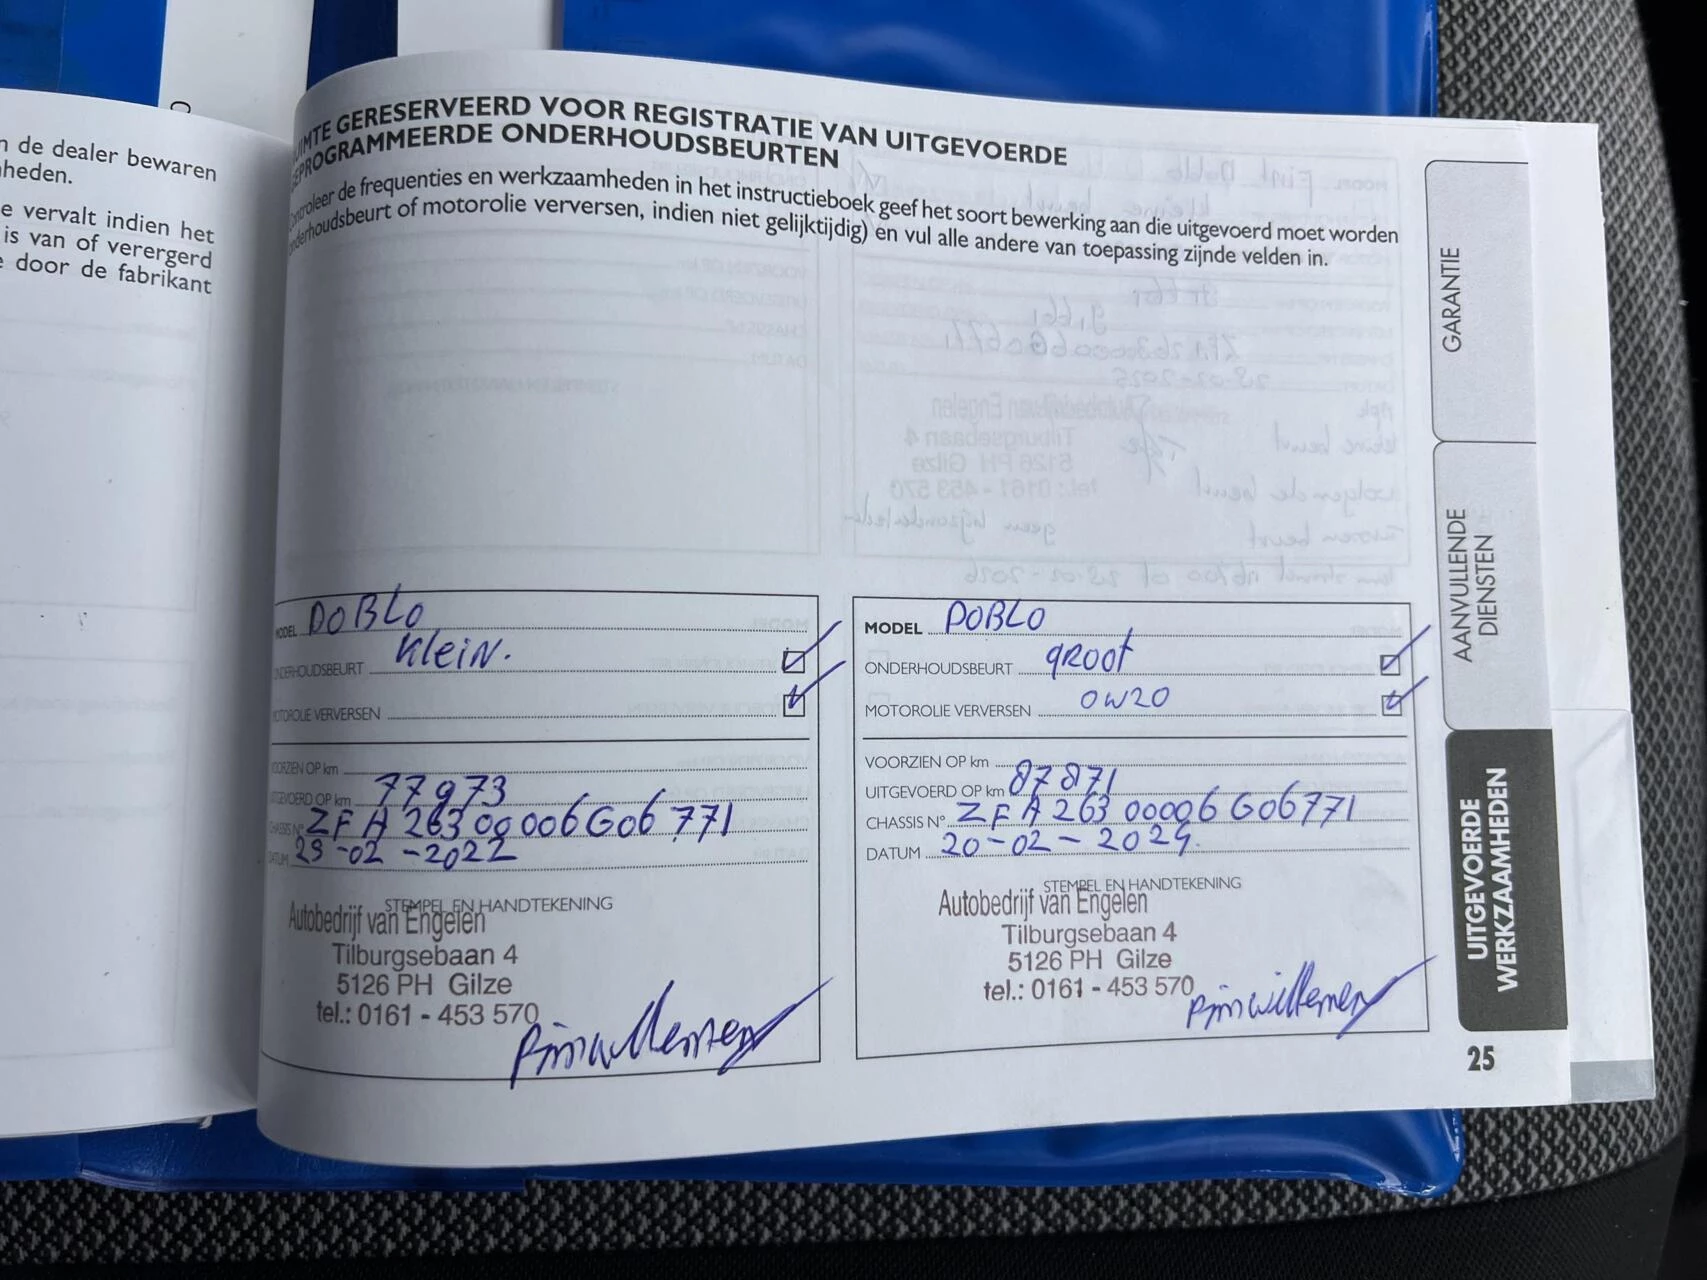 n de dealer bewaren
heden.
e vervalt indien het
is van of verergerd
e door de fabrikant
GERESERVEERD VOOR REGISTRATIE VAN UITGEVOERDE
PROGRAMMEERDE ONDERHOUDSBEURTEN
Controleer de frequenties en werkzaamheden in het instructieboek geef het soort bewerking aan die uitgevoerd moet worden
onderhoudsbeurt of motorolie verversen, indien niet gelijktijdig) en vul alle andere van toepassing zijnde velden in.
MODEL DOBLO
ONDERHOUDSBEURT Klein.
MOTOROLIE VERVERSEN
VOORZIEN OP km
UITGEVOERD OP km 77973
CHASSIS N° ZFA26300006G06771
DATUM 23-02-2022
STEMPEL EN HANDTEKENING
Autobedrijf van Engelen
Tilburgsebaan 4
5126 PH Gilze
tel.: 0161 - 453 570
MODEL DOBLO
ONDERHOUDSBEURT groot
MOTOROLIE VERVERSEN 0W20
VOORZIEN OP km
UITGEVOERD OP km 87871
CHASSIS N° ZFA26300006G06771
DATUM 20-02-2024.
STEMPEL EN HANDTEKENING
Autobedrijf van Engelen
Tilburgsebaan 4
5126 PH Gilze
tel.: 0161 - 453 570
GARANTIE
AANVULLENDE
DIENSTEN
UITGEVOERDE
WERKZAAMHEDEN
25